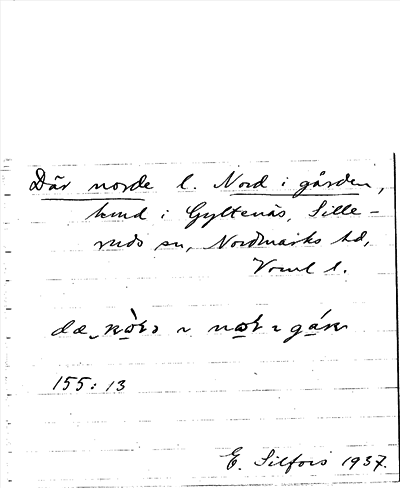 Där norde l. Nord i gården,
hmd i Gyltenäs, Sille-
ruds sn, Nordmarks hd,
Vrml l.
155:13
E. Silfors 1937.